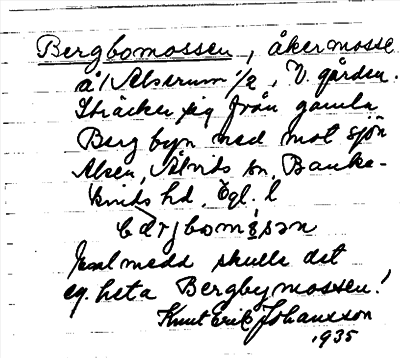 Bergbomossen, åkermosse
å Alserum 1/2, V. gården.
Sträcker sig från gamla
Berg byn ned mot sjön
Alsen, Åtvids sn, Banke-
kinds hd, Ögl. l
bærjbomɔsən
Enl medd skulle det
eg. heta Bergbymossen!
Knut Erik Johansson
1935